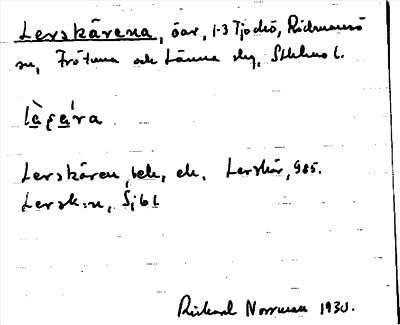 Lerskärena, öar, 1-3 Tjockö, Rådmansö
sn, Frötuna och Länna skg, Sthlms l.
Lerskären, bek, ek. Lerskär, 985.
Lersk:n, Sjbl
Rickard Norrman 1930.